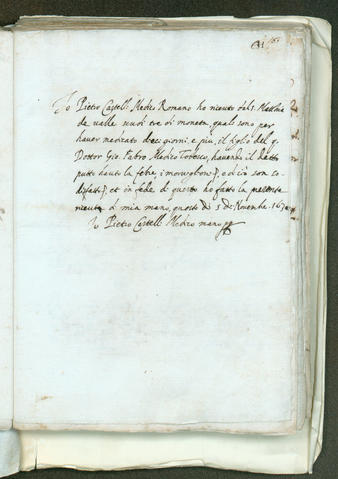 Io Pietro Castelli Medico Romano ho riceuto dal s. Matthia
de valle scudi tre di moneta, quali sono per
haver medicato dieci giorni, e piu, il figlio del q.
Dottor Gio. Fabro Medico Todesco, havendo il detto
putto hauto la febre, i morviglioni, ed io son so-
disfatto, et in fede di questo ho fatto la presente
riceuta di mia mano, questo dì 5 di Novembre. 16
Io Pietro Castelli Medico mano pp